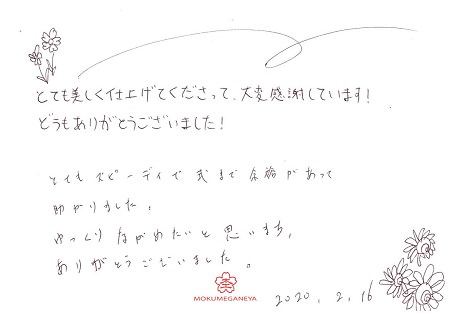 とても美しく仕上げてくださって、大変感謝しています!
どうもありがとうございました!
とてもスピーディで式まで余裕があって
助かりました。
ゆっくりながめたいと思います。
ありがとうございました。
MOKUMEGANEYA
2020. 2. 16